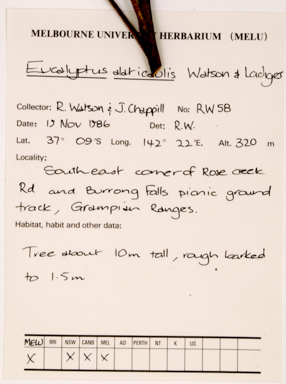 MELBOURNE UNIVER HERBARIUM (MELU)
Eucalyptus alaticaulis Watson & Ladiges
Collector: R. Watson & J. Chappill No: RW58
Date: 17 Nov 1986 Det: R.W.
Lat. 37° 09'S Long. 142° 22'E. Alt. 320 m
Locality:
South east corner of Rose creek
Rd and Burrong Falls picnic ground
track, Grampian Ranges.
Habitat, habit and other data:
Tree about 10m tall, rough barked
to 1.5m
MELU BRI NSW CANB MEL AD PERTH NT K US
X X X X